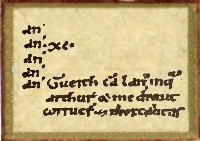 an̄
an̄ .xc.
an̄
an̄
an̄
an̄ Gueith cā lan̄ inq̄
arthur ⁊ medraut
corruer̄